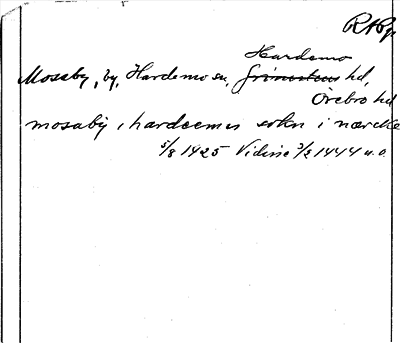 RApp
Hardemo
Mosaby, by, Hardemo sn, Grimstens hd,
Örebro hd
mosaby i hardeemss sokn i nærcke
5/8 1425 Vidisse 3/3 1444 u.o.